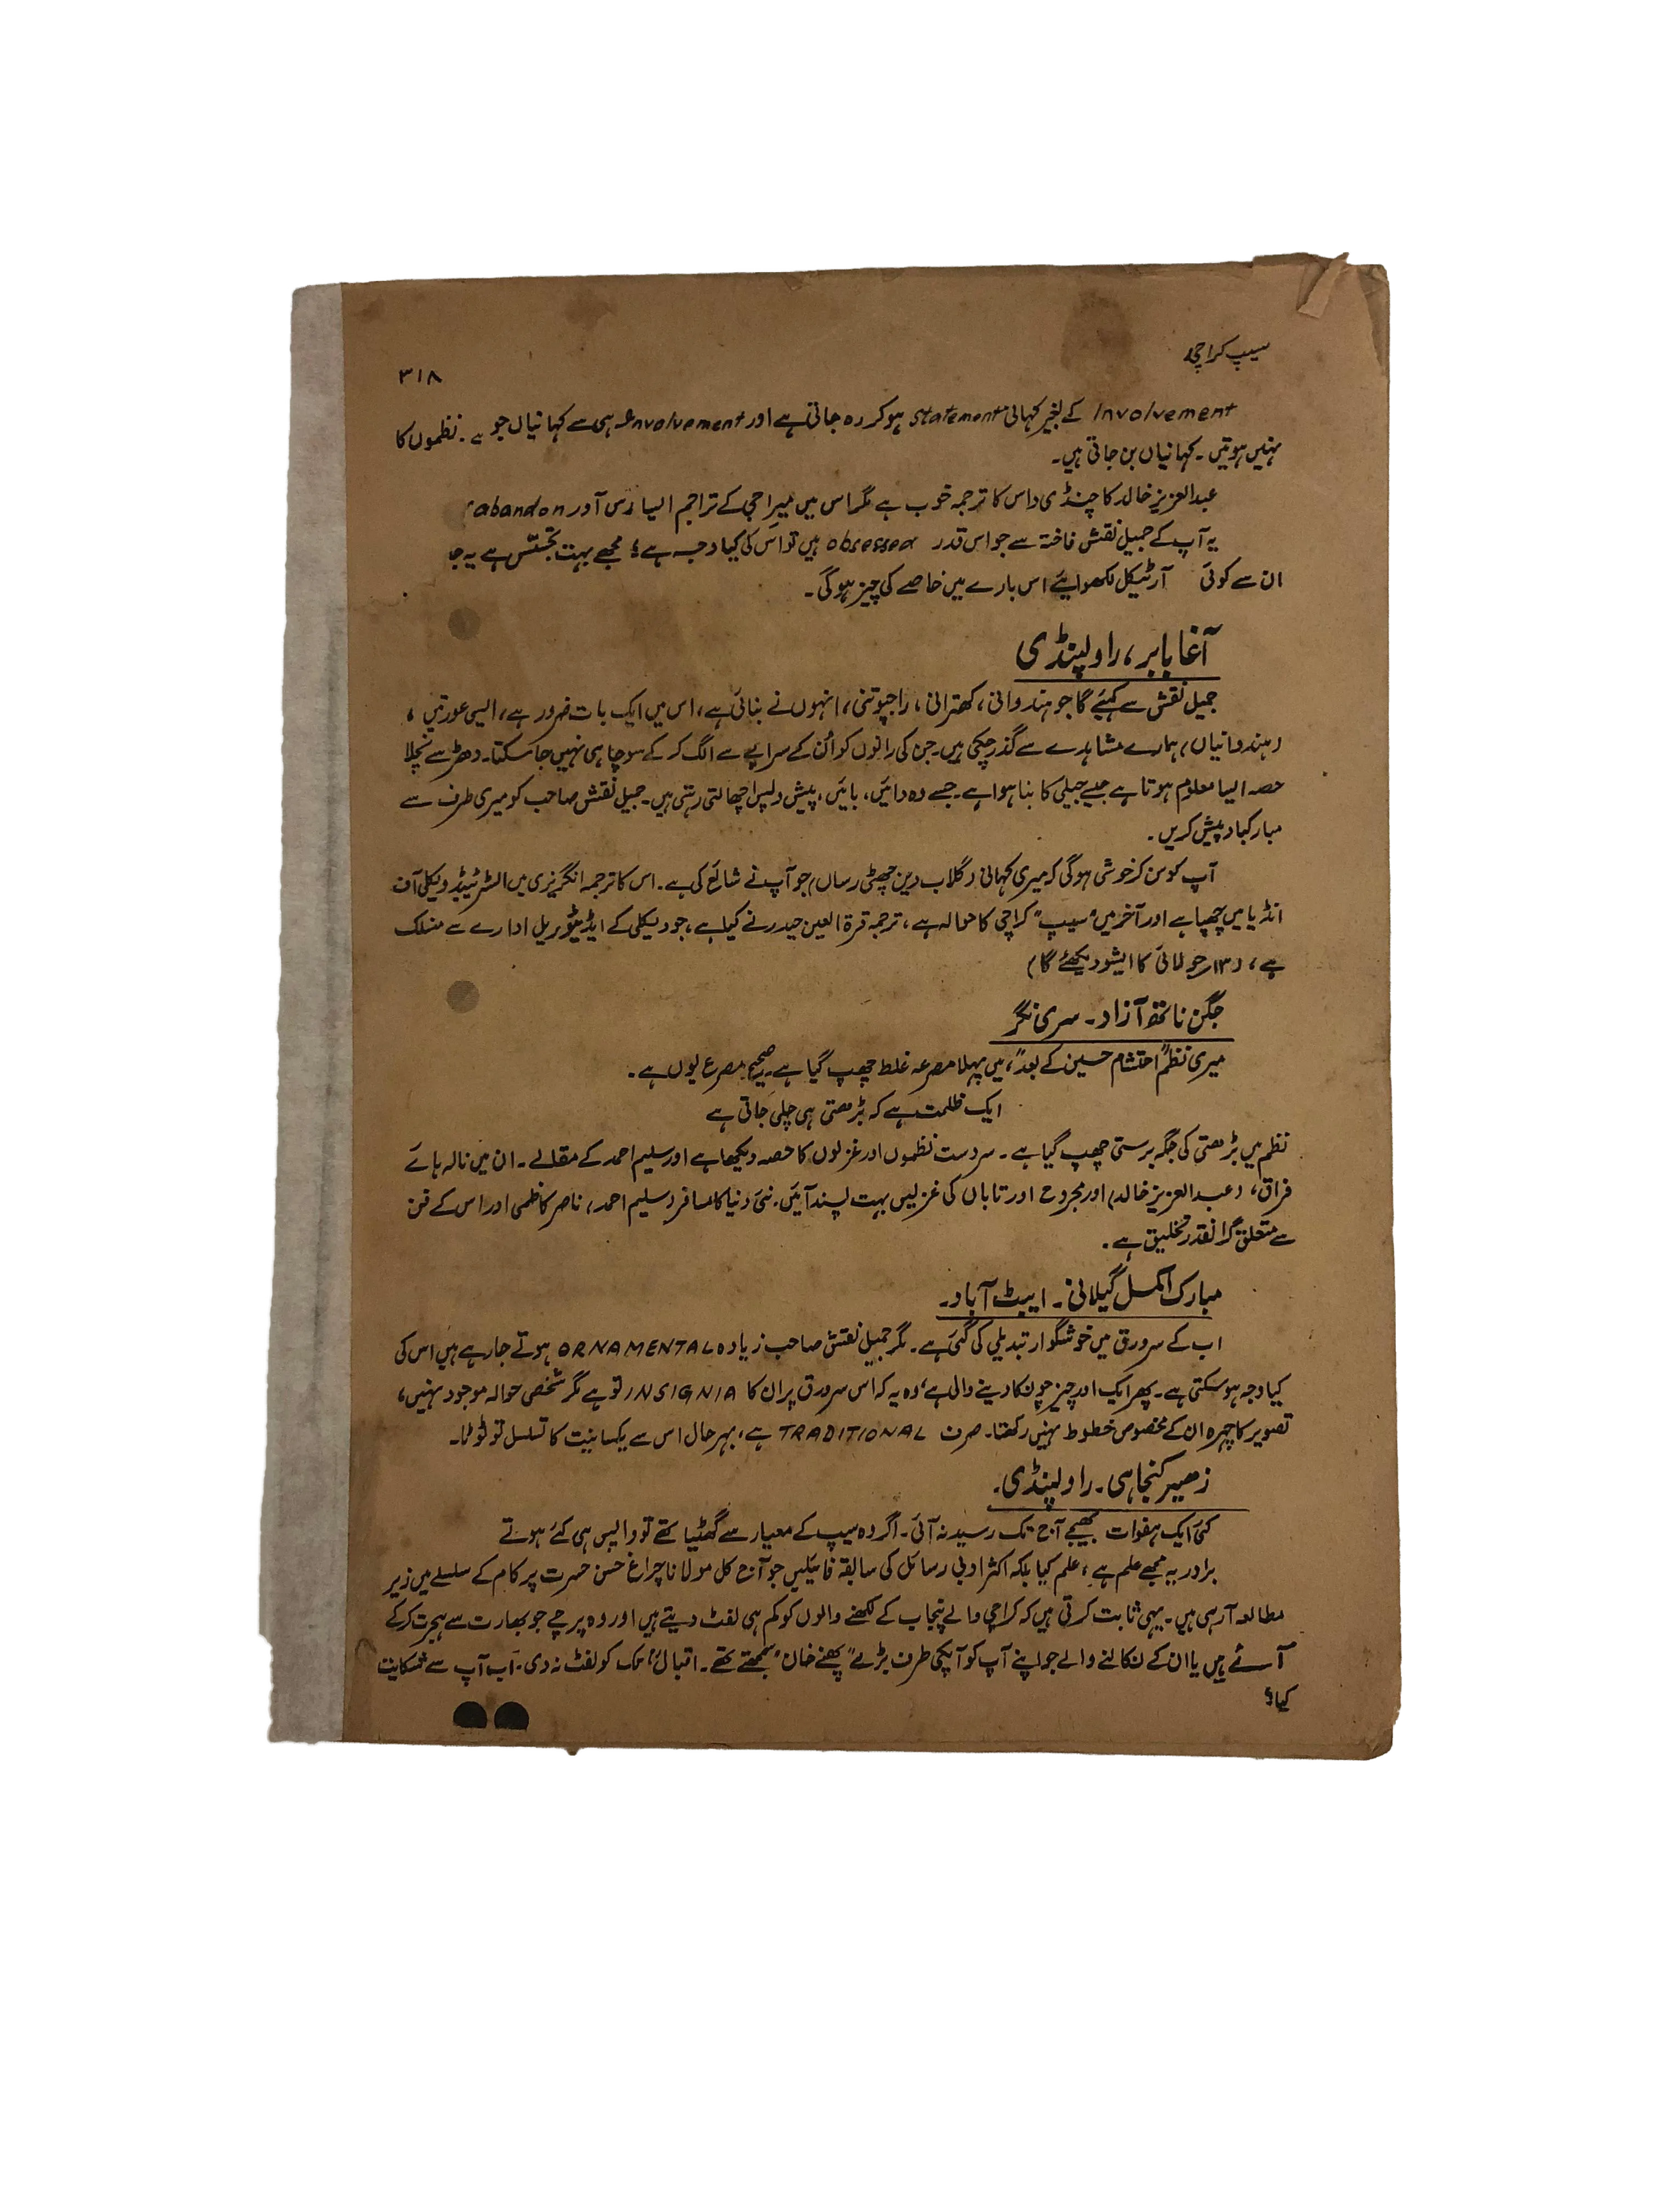 سیپ کراچی
۳۱۸
Involvement کے بغیر کہانی statement ہو کر رہ جاتی ہے اور Involvement ہی سے کہانیاں جو ہے۔ نظموں کا
نہیں ہوتیں۔ کہانیاں بن جاتی ہیں۔
عبدالعزیز خالد کا چنڈی داس کا ترجمہ خوب ہے مگر اس میں میراجی کے تراجم ایسا رس آور abandon
یہ آپ کے جمیل نقش فاختہ سے جو اس قدر obsessed ہیں تو اس کی کیا وجہ ہے؟ مجھے بہت تجسّس ہے یہ جا
ان سے کوئی آرٹیکل لکھوایئے اس بارے میں خاصے کی چیز ہوگی۔
آغا بابر، راولپنڈی
جمیل نقش سے کہیئے گا جو ہندوانی، کھترانی، راجپوتنی، انہوں نے بنائی ہے، اس میں ایک بات ضرور ہے، ایسی عورتیں،
(ہندوانیاں) ہمارے مشاہدے سے گذر چکی ہیں۔ جن کی رانوں کو اُن کے سراپے سے الگ کر کے سوچا ہی نہیں جا سکتا۔ دھڑ سے نچلا
حصہ ایسا معلوم ہوتا ہے جیسے جیلی کا بنا ہوا ہے۔ جسے وہ دائیں، بائیں، پیش و پس اچھالتی رہتی ہیں۔ جمیل نقش صاحب کو میری طرف سے
مبارکباد پیش کریں۔
آپ کو سن کر خوشی ہوگی کہ میری کہانی (گلاب دین چٹھی رساں) جو آپ نے شائع کی ہے۔ اس کا ترجمہ انگریزی میں السٹریٹیڈ ویکلی آف
انڈیا میں چھپا ہے اور آخر میں "سیپ" کراچی کا حوالہ ہے، ترجمہ قرۃ العین حیدر نے کیا ہے، جو ویکلی کے ایڈیٹوریل ادارے سے منسلک
ہے، (۱۳ر جولائی کا ایشو دیکھئے گا)
جگن ناتھ آزاد۔ سری نگر
میری نظم "احتشام حسین کے بعد"، میں پہلا مصرعہ غلط چھپ گیا ہے۔ صحیح مصرع یوں ہے۔
ایک ظلمت ہے کہ بڑھتی ہی چلی جاتی ہے
نظم میں بڑھتی کی جگہ برستی چھپ گیا ہے۔ سردست نظموں اور غزلوں کا حصہ دیکھا ہے اور سلیم احمد کے مقالے۔ ان میں نالہ ہائے
فراق، (عبدالعزیز خالد) اور مجروح اور تاباں کی غزلیں بہت پسند آئیں۔ نئی دنیا کا مسافر (سلیم احمد) ناصر کاظمی اور اس کے فن
سے متعلق گرانقدر تخلیق ہے۔
مبارک اکمل گیلانی۔ ایبٹ آباد۔
اب کے سرورق میں خوشگوار تبدیلی کی گئی ہے۔ مگر جمیل نقش صاحب زیادہ ORNAMENTAL ہوتے جا رہے ہیں اس کی
کیا وجہ ہو سکتی ہے۔ پھر ایک اور چیز چونکا دینے والی ہے، وہ یہ کہ اس سرورق پر ان کا INSIGNIA تو ہے مگر شخصی حوالہ موجود نہیں،
تصویر کا چہرہ ان کے مخصوص خطوط نہیں رکھتا۔ صرف TRADITIONAL ہے، بہرحال اس سے یکسانیت کا تسلسل تو ٹوٹا۔
زھیر کنجاہی۔ راولپنڈی۔
کئی ایک ہفوات بھیجے آج تک رسید نہ آئی۔ اگر وہ سیپ کے معیار سے گھٹیا تھے تو واپس ہی کئے ہوتے
برادر یہ مجھے علم ہے، علم کیا بلکہ اکثر ادبی رسائل کی سابقہ فائیلیں جو آج کل مولانا چراغ حسن حسرت پر کام کے سلسلے میں زیر
مطالعہ آ رہی ہیں۔ یہی ثابت کرتی ہیں کہ کراچی والے پنجاب کے لکھنے والوں کو کم ہی لفٹ دیتے ہیں اور وہ پرچے جو بھارت سے ہجرت کر کے
آئے ہیں یا ان کے نکالنے والے جو اپنے آپ کو آپکی طرف بڑے "پھنے خان" سمجھتے تھے۔ اقبالؒ تک کو لفٹ نہ دی۔ اب آپ سے شکایت
کیا؟